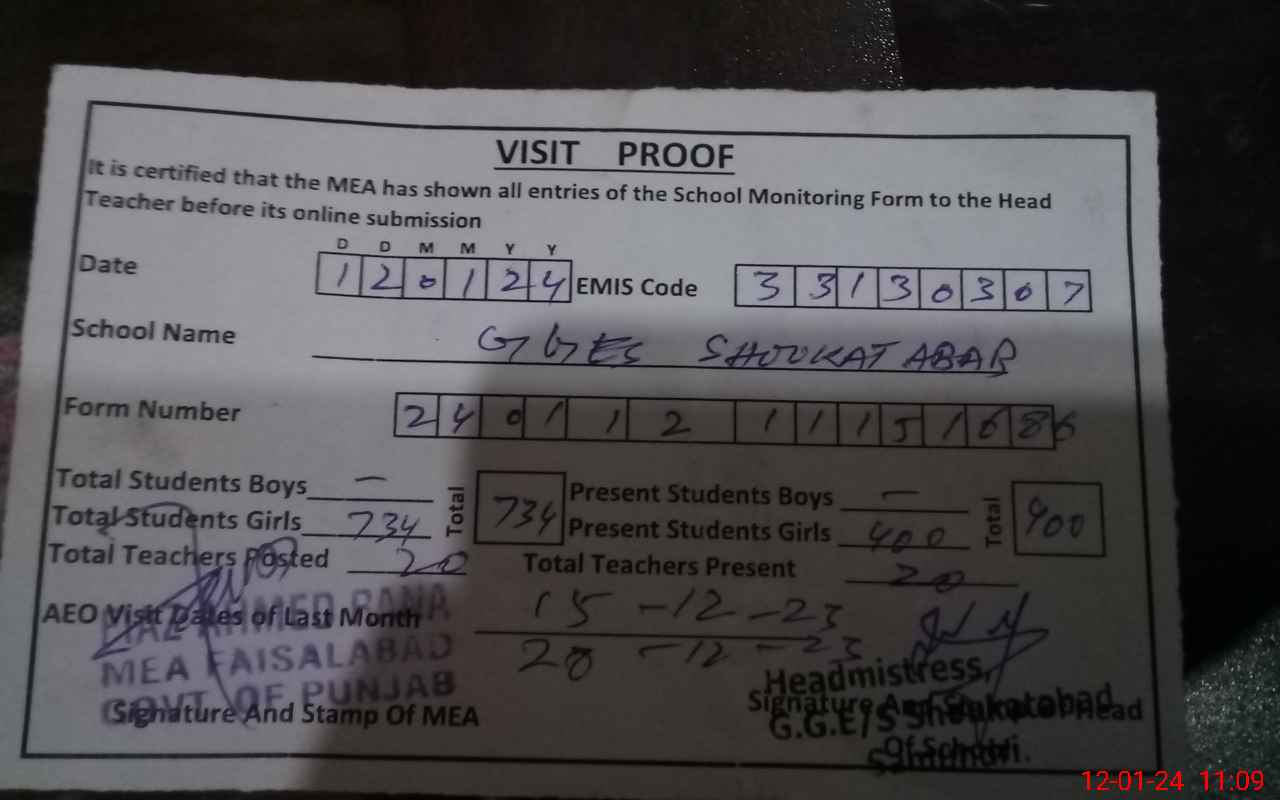 VISIT PROOF
It is certified that the MEA has shown all entries of the School Monitoring Form to the Head
Teacher before its online submission
D D M M Y Y
Date 1 2 0 1 2 4 EMIS Code 3 3 1 3 0 3 0 7
School Name GGES SHOUKAT ABAD
Form Number 2 4 0 1 1 2 1 1 1 5 1 6 8 6
Total Students Boys — Total 734 Present Students Boys — Total 400
Total Students Girls 734 Present Students Girls 400
Total Teachers Posted 20 Total Teachers Present 20
AEO Visit Dates of Last Month 15-12-23
20-12-23
AHMED RANA
MEA FAISALABAD
GOVT. OF PUNJAB
Signature And Stamp Of MEA
Headmistress,
Signature And Stamp of Head
G.G.E/S Shoukatabad
Of School
12-01-24 11:09